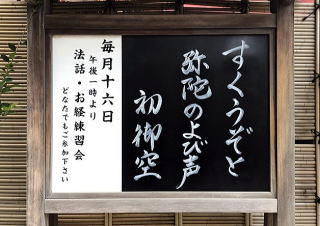 すくうぞと
弥陀のよび声
初御空
毎月十六日
午後一時より
法話・お経練習会
どなたでもご参加下さい